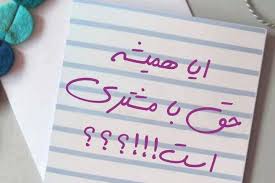 ایا همیشه
حق با مشتری
است!!!؟؟؟